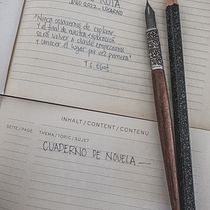 RUTA
"Nunca cesaremos de explorar
y el final de nuestra exploración
será volver a donde empezamos
y conocer el lugar por vez primera"
T.S. Eliot
INHALT / CONTENT / CONTENU
SEITE / PAGE THEMA / TOPIC / SUJET
CUADERNO DE NOVELA